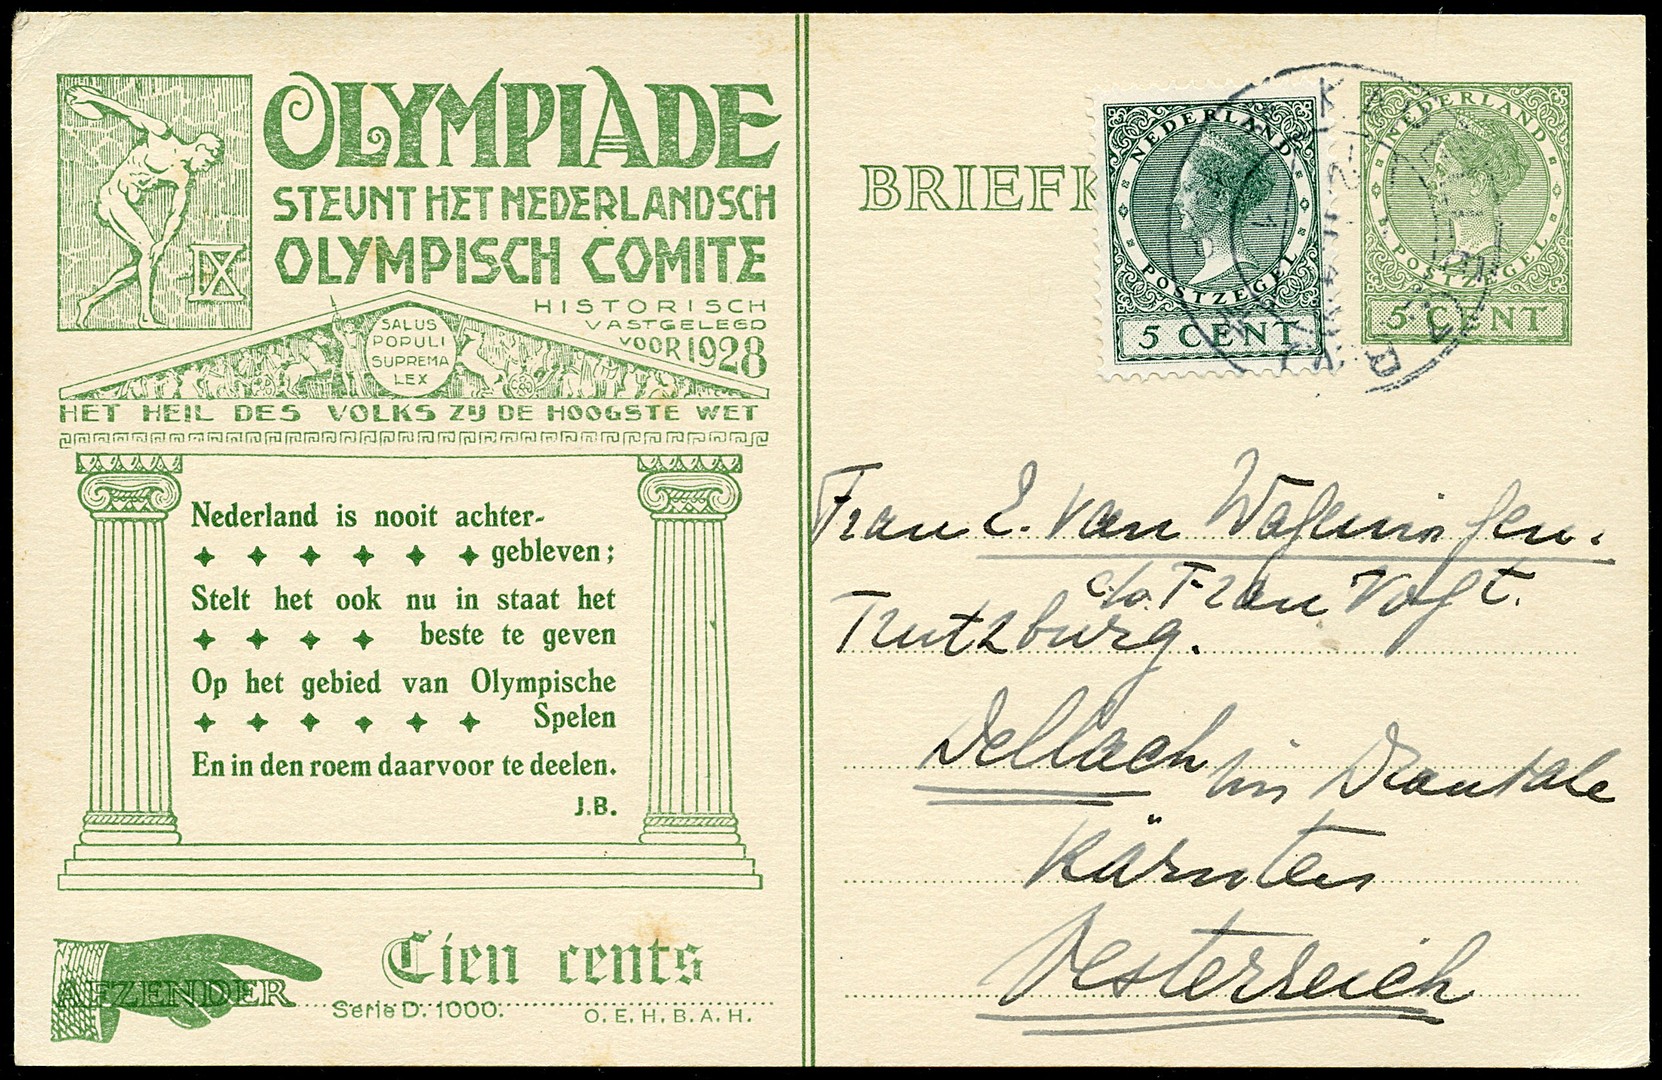 OLYMPIADE
STEUNT HET NEDERLANDSCH
OLYMPISCH COMITE
IX
HISTORISCH
VASTGELEGD
VOOR 1928
SALUS
POPULI
SUPREMA
LEX
HET HEIL DES VOLKS ZY DE HOOGSTE WET
Nederland is nooit achter-
gebleven;
Stelt het ook nu in staat het
beste te geven
Op het gebied van Olympische
Spelen
En in den roem daarvoor te deelen.
J.B.
Tien cents
AFZENDER
Serie D. 1000.
O.E.H.B.A.H.
BRIEFK
NEDERLAND
POSTZEGEL
5 CENT
NEDERLAND
POSTZEGEL
5 CENT
Frau E. van Wageningen.
c/o. Frau Vogt.
Trutzburg.
Dellach im Drautale
Kärnten
Oesterreich